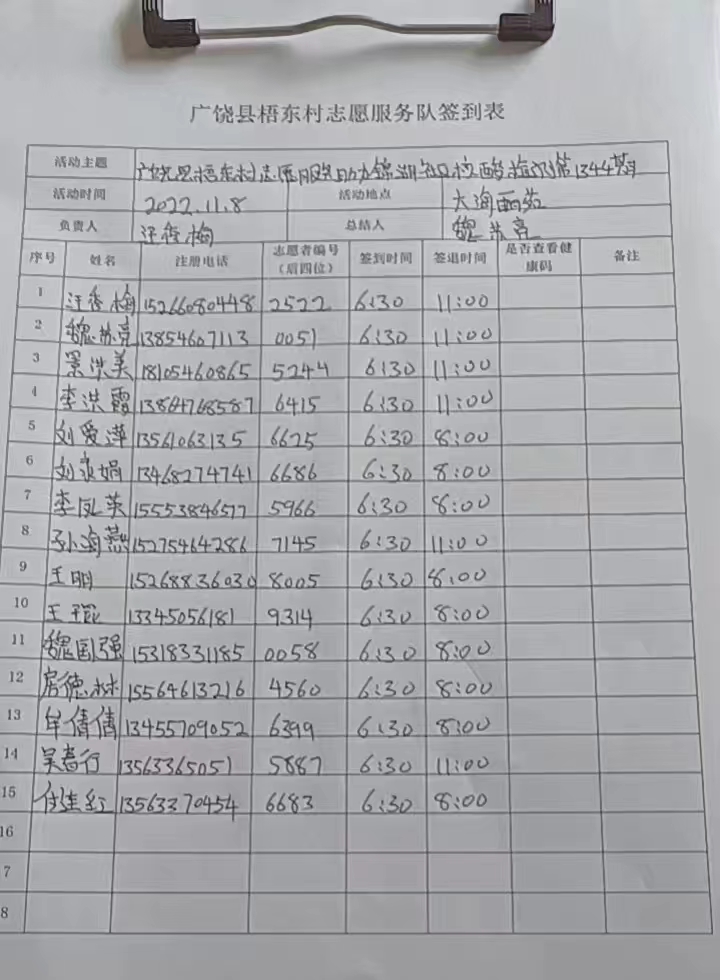 广饶县梧东村志愿服务队签到表
活动主题 广饶县梧东村志愿服务队助力锦湖社区核酸检测第1344期
活动时间 2022.11.8 活动地点 大海西苑
负责人 汪秀梅 总结人 魏苏亮
序号 姓名 注册电话 志愿者编号（后四位） 签到时间 签退时间 是否查看健康码 备注
1 汪秀梅 15266080448 2522 6:30 11:00
2 魏苏亮 13854607113 0051 6:30 11:00
3 景洪美 18105460865 5244 6:30 11:00
4 李洪霞 13864768587 6415 6:30 11:00
5 刘爱萍 13561063135 6625 6:30 8:00
6 刘永娟 13468274741 6686 6:30 8:00
7 李凤英 15553846577 5966 6:30 8:00
8 孙海燕 15275464286 7145 6:30 11:00
9 王明 15268836030 8005 6:30 8:00
10 王 13345056181 9314 6:30 8:00
11 魏国强 15318331185 0058 6:30 8:00
12 房德林 15564613216 4560 6:30 8:00
13 牟倩倩 13455709052 6399 6:30 8:00
14 吴春行 13563365051 5887 6:30 11:00
15 付连红 13563370454 6683 6:30 8:00
16
7
8